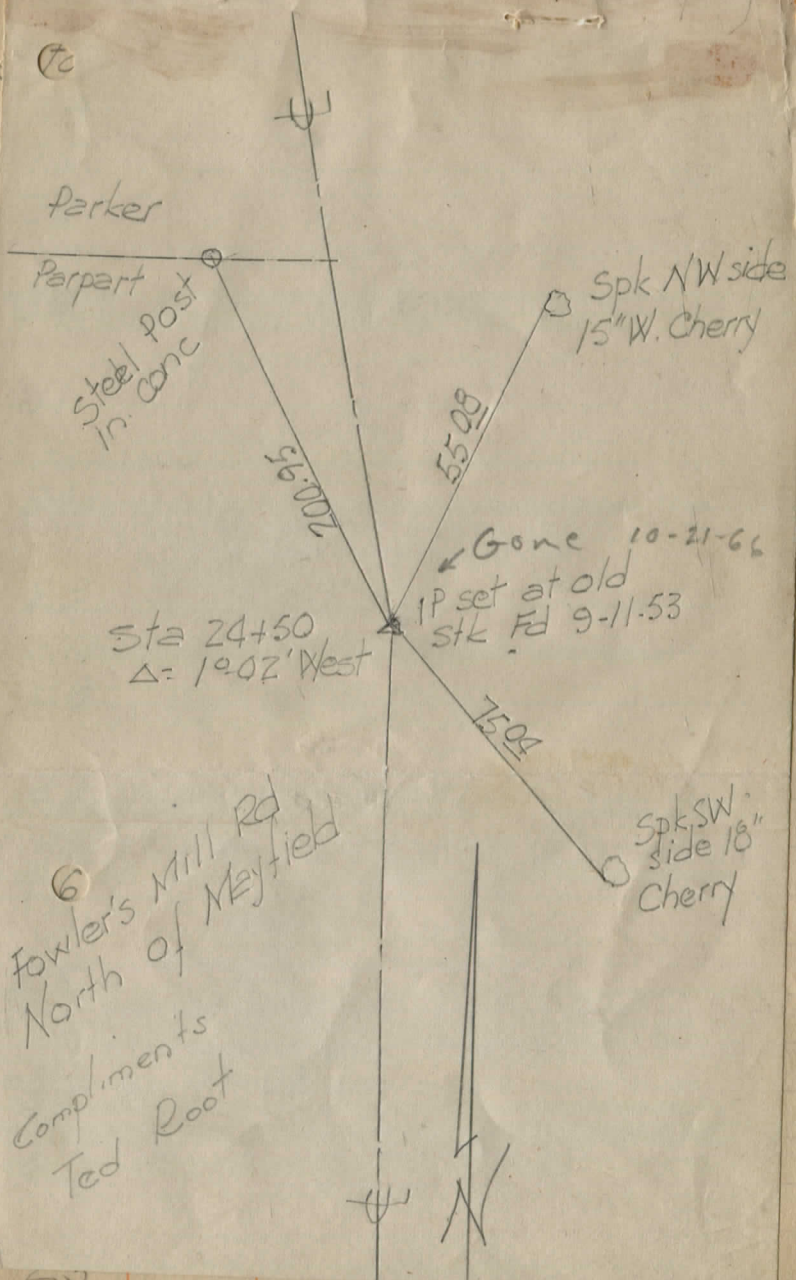 Parker
Parpart
Steel Post
in. conc
Spk NW side
15" W. Cherry
200.95
55.08
Gone 10-21-66
IP set at old
stk Fd 9-11-53
Sta 24+50
Δ= 1°-02' West
75.04
Spk. SW
side 18"
Cherry
6
Fowler's Mill Rd
North of Mayfield
Compliments
Ted Root
N